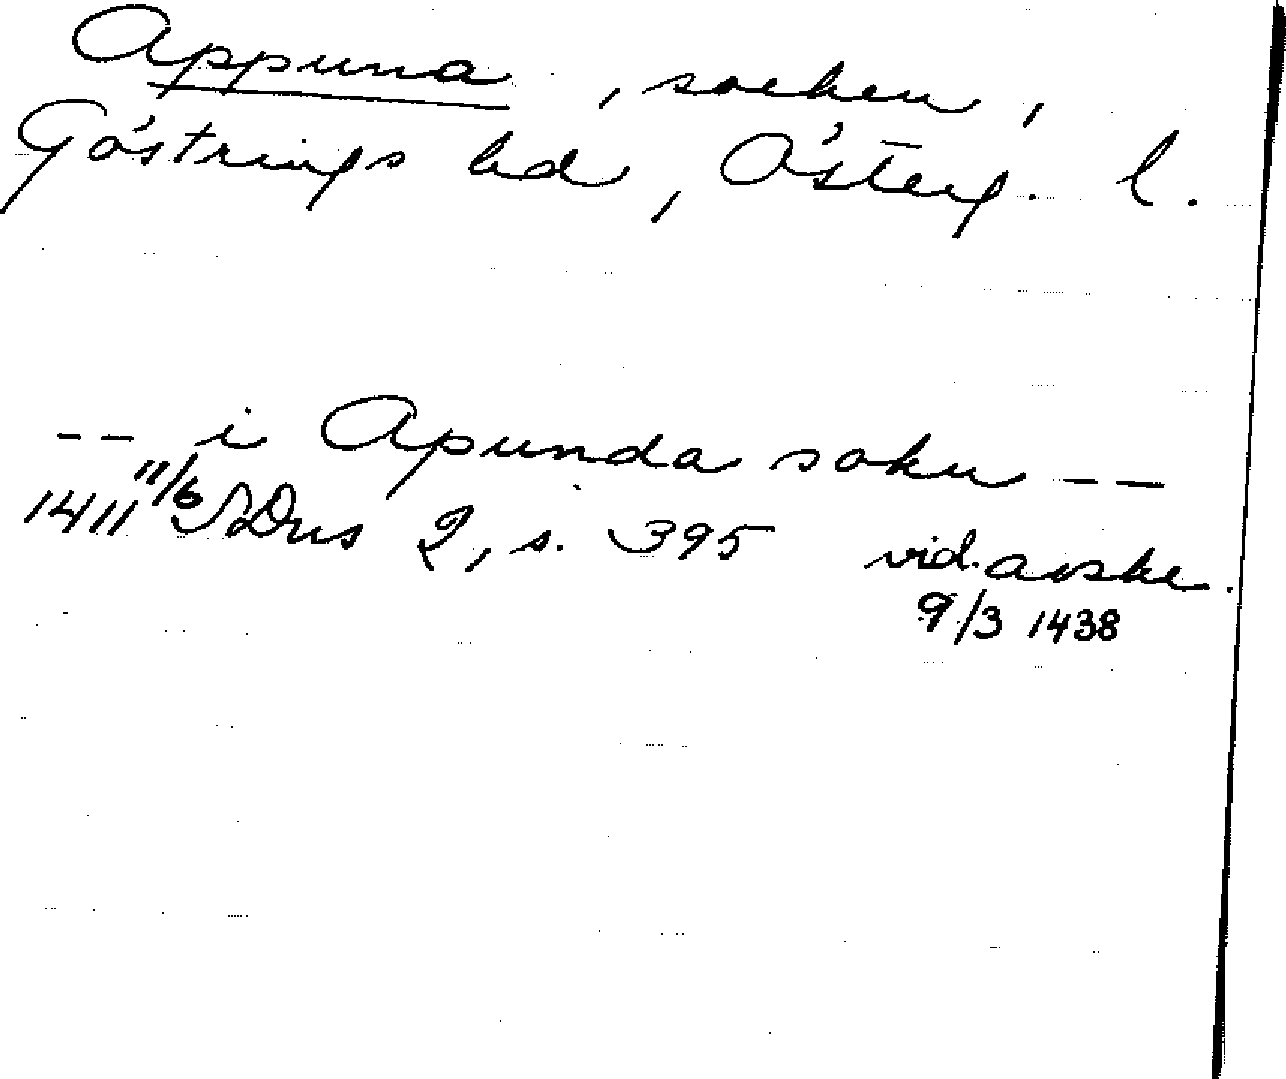 Appuna, socken,
Göstrings hd, Österg. l.
-- i Apunda sokn --
1411 11/6 SDns 2, s. 395 vid. avskr.
9/3 1438